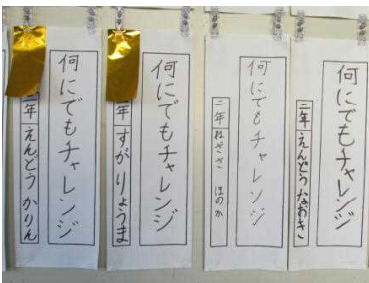 何にでもチャレンジ
二年 えんどう かりん
何にでもチャレンジ
年 すがりょうま
何にでもチャレンジ
二年 ねぎさ ほのか
何にでもチャレンジ
二年 えんどうなおき